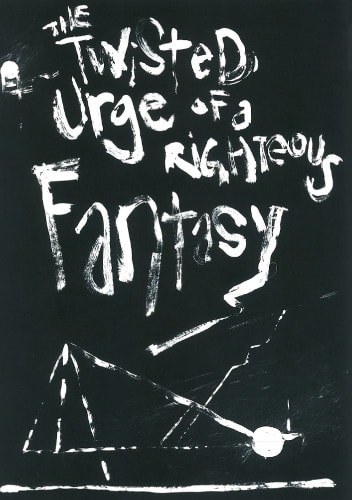 THE
TwisteD
Urge of a
RIGHTEOUS
Fantasy